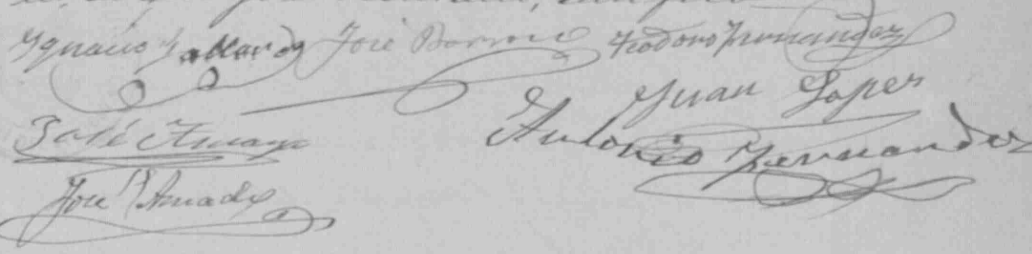 Ygnacio Gallardo José Borone Teodoro Fernandez
Juan Lopes
José Amaya Antonio Fernandez
José Amado